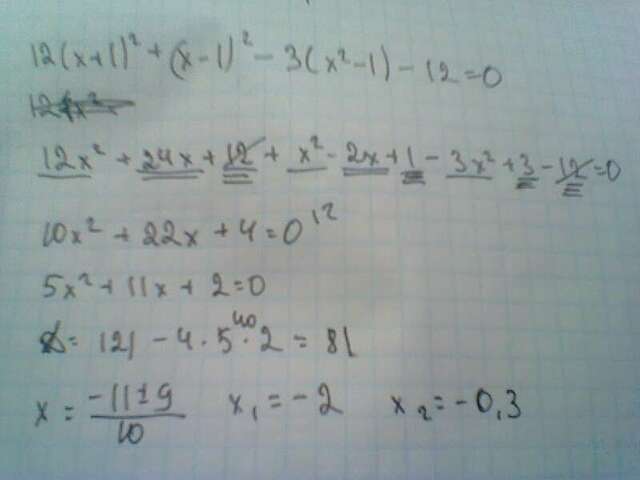 12(x+1)² + (x-1)² - 3(x²-1) - 12=0
12x² + 24x + 12 + x² - 2x + 1 - 3x² + 3 - 12=0
10x² + 22x + 4=0 12
5x² + 11x + 2=0
D= 121 - 4·5·2 = 81
40
x = -11±9/10 x₁ = -2 x₂ = -0,3